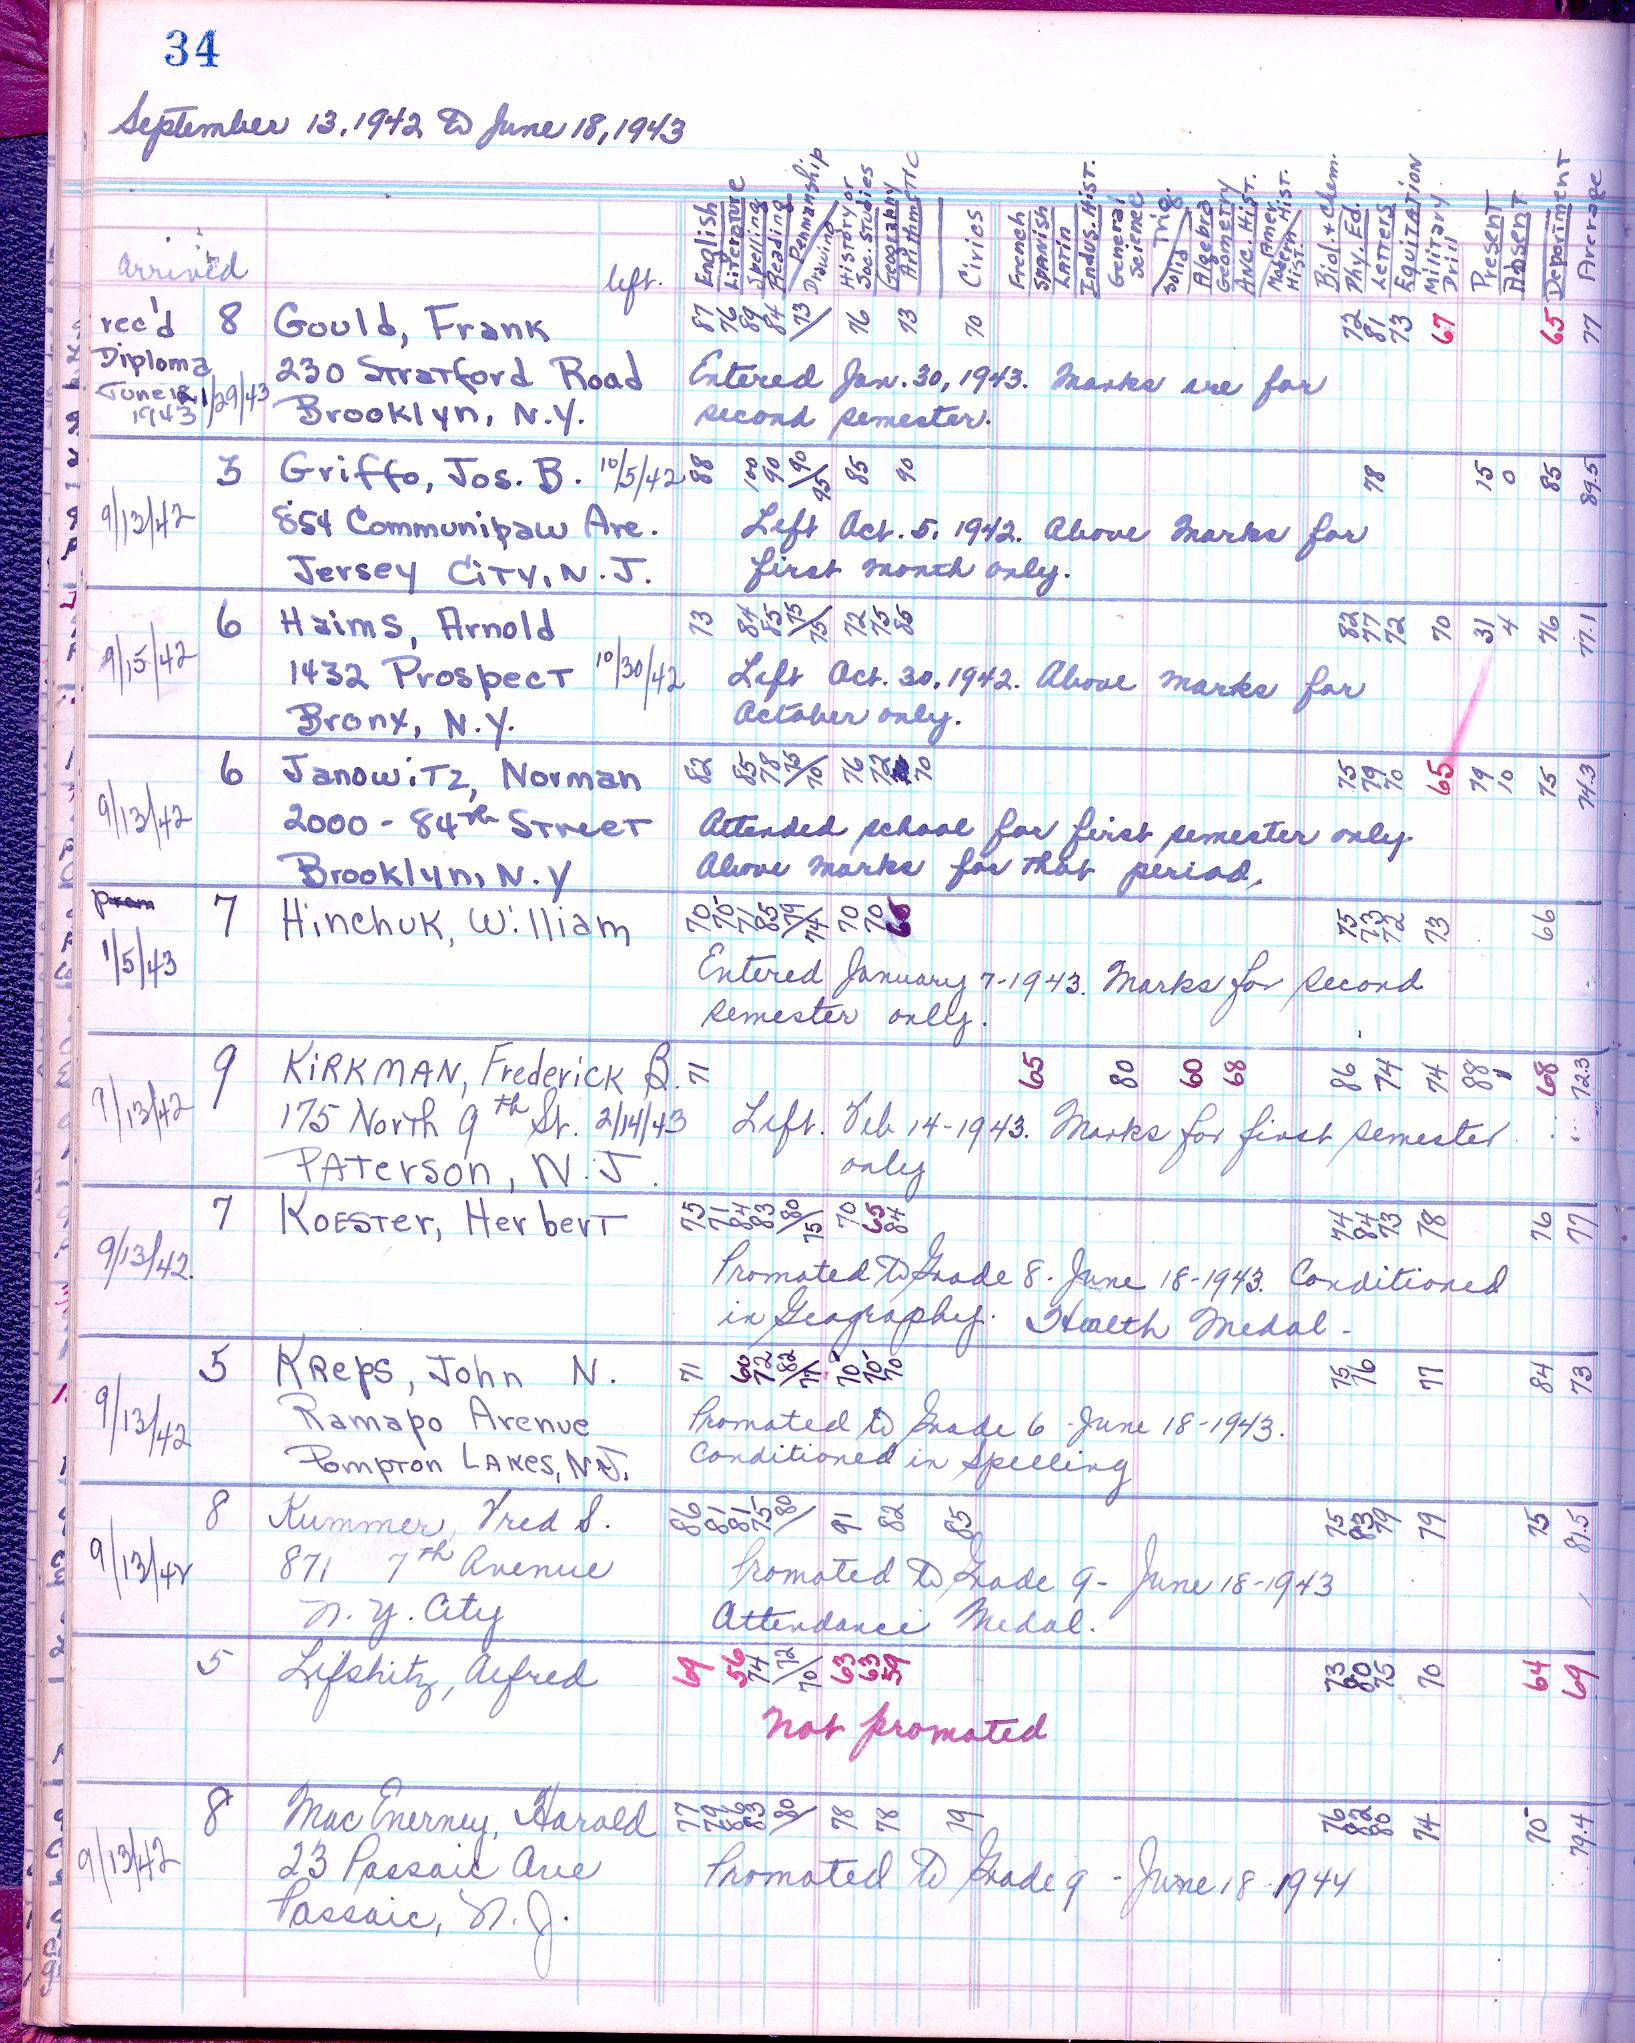 34
September 13, 1942 to June 18, 1943
Arrived left. English Literature Spelling Reading Penmanship Drawing History or Soc. Studies Geography Arithmetic Civics French Spanish Latin Indus. Hist. General Science Solid Trig. Algebra Geometry Anc. Hist. Amer. Hist. Modern Hist. Biol. & Chem. Phy. Ed. Letters Equitation Military Drill Present Absent Deportment Average
rec'd 8 Gould, Frank 87 76 89 84 73/ 76 73 70 72 81 73 67 65 77
Diploma 230 Stratford Road Entered Jan. 30, 1943. Marks are for
June 18 1943 1/29/43 Brooklyn, N.Y. second semester.
3 Griffo, Jos. B. 10/5/42 88 100 90 90/95 85 90 78 15 0 85 89.5
9/13/42 854 Communipaw Ave. Left Oct. 5, 1942. Above Marks for
Jersey City, N.J. first month only.
6 Haims, Arnold 73 84 85 75/75 72 75 85 82 77 72 70 31 4 76 77.1
9/15/42 1432 Prospect 10/30/42 Left Oct. 30, 1942. Above marks for
Bronx, N.Y. October only.
6 Janowitz, Norman 82 85 78 75/70 76 72 70 75 79 70 65 79 10 75 74.3
9/13/42 2000 - 84th Street Attended school for first semester only.
Brooklyn, N.Y Above marks for that period.
7 Hinchuk, William 70 70 71 85 79/74 70 70 75 73 72 73 66
1/5/43 Entered January 7-1943. Marks for second
semester only.
9 KIRKMAN, Frederick B. 71 65 80 60 68 86 74 74 88 1 68 72.3
9/13/42 175 North 9th St. 2/14/43 Left. Feb 14-1943. Marks for first semester
Paterson, N.J. only
7 Koester, Herbert 75 71 84 83 80/75 70 65 84 74 84 73 78 76 77
9/13/42. Promoted to Grade 8. June 18-1943. Conditioned
in Geography. Health Medal -
5 Kreps, John N. 71 60 72 82/77 70 70 70 75 76 77 84 73
9/13/42 Ramapo Avenue Promoted to Grade 6 - June 18-1943.
Pompton Lakes, N.J. Conditioned in Spelling
8 Kummer, Fred S. 86 81 81 75 80/ 91 82 85 75 83 79 79 75 81.5
9/13/42 871 7th Avenue Promoted to Grade 9 - June 18-1943
N.Y. City Attendance Medal.
5 Lifshitz, Alfred 69 56 74 72/70 63 63 59 73 80 75 70 64 69
Not promoted
8 Mac Enerney, Harold 77 79 86 83 80/ 78 78 79 76 82 80 74 70 79.4
9/13/42 23 Passaic Ave Promoted to Grade 9 - June 18 - 1944
Passaic, N.J.